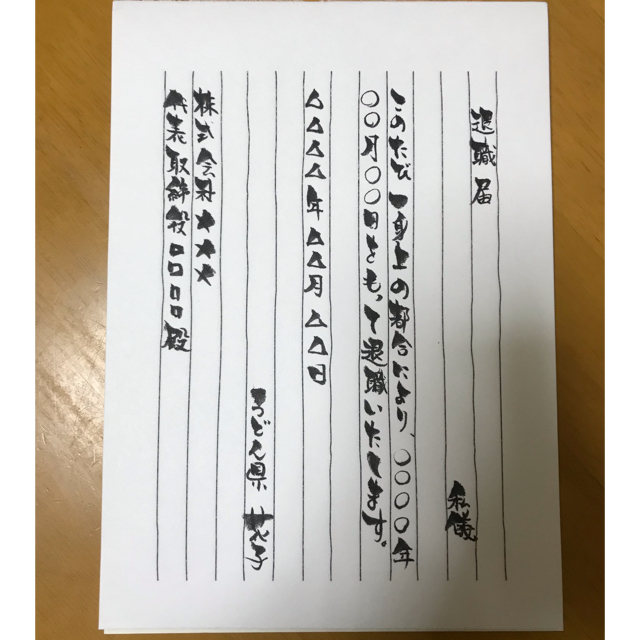 退職届
私儀
このたび一身上の都合により、○○○○年
○○月○○日をもって退職いたします。
△△△△年△△月△△日
うどん県 花子
株式会社★★★
代表取締役□□□□殿